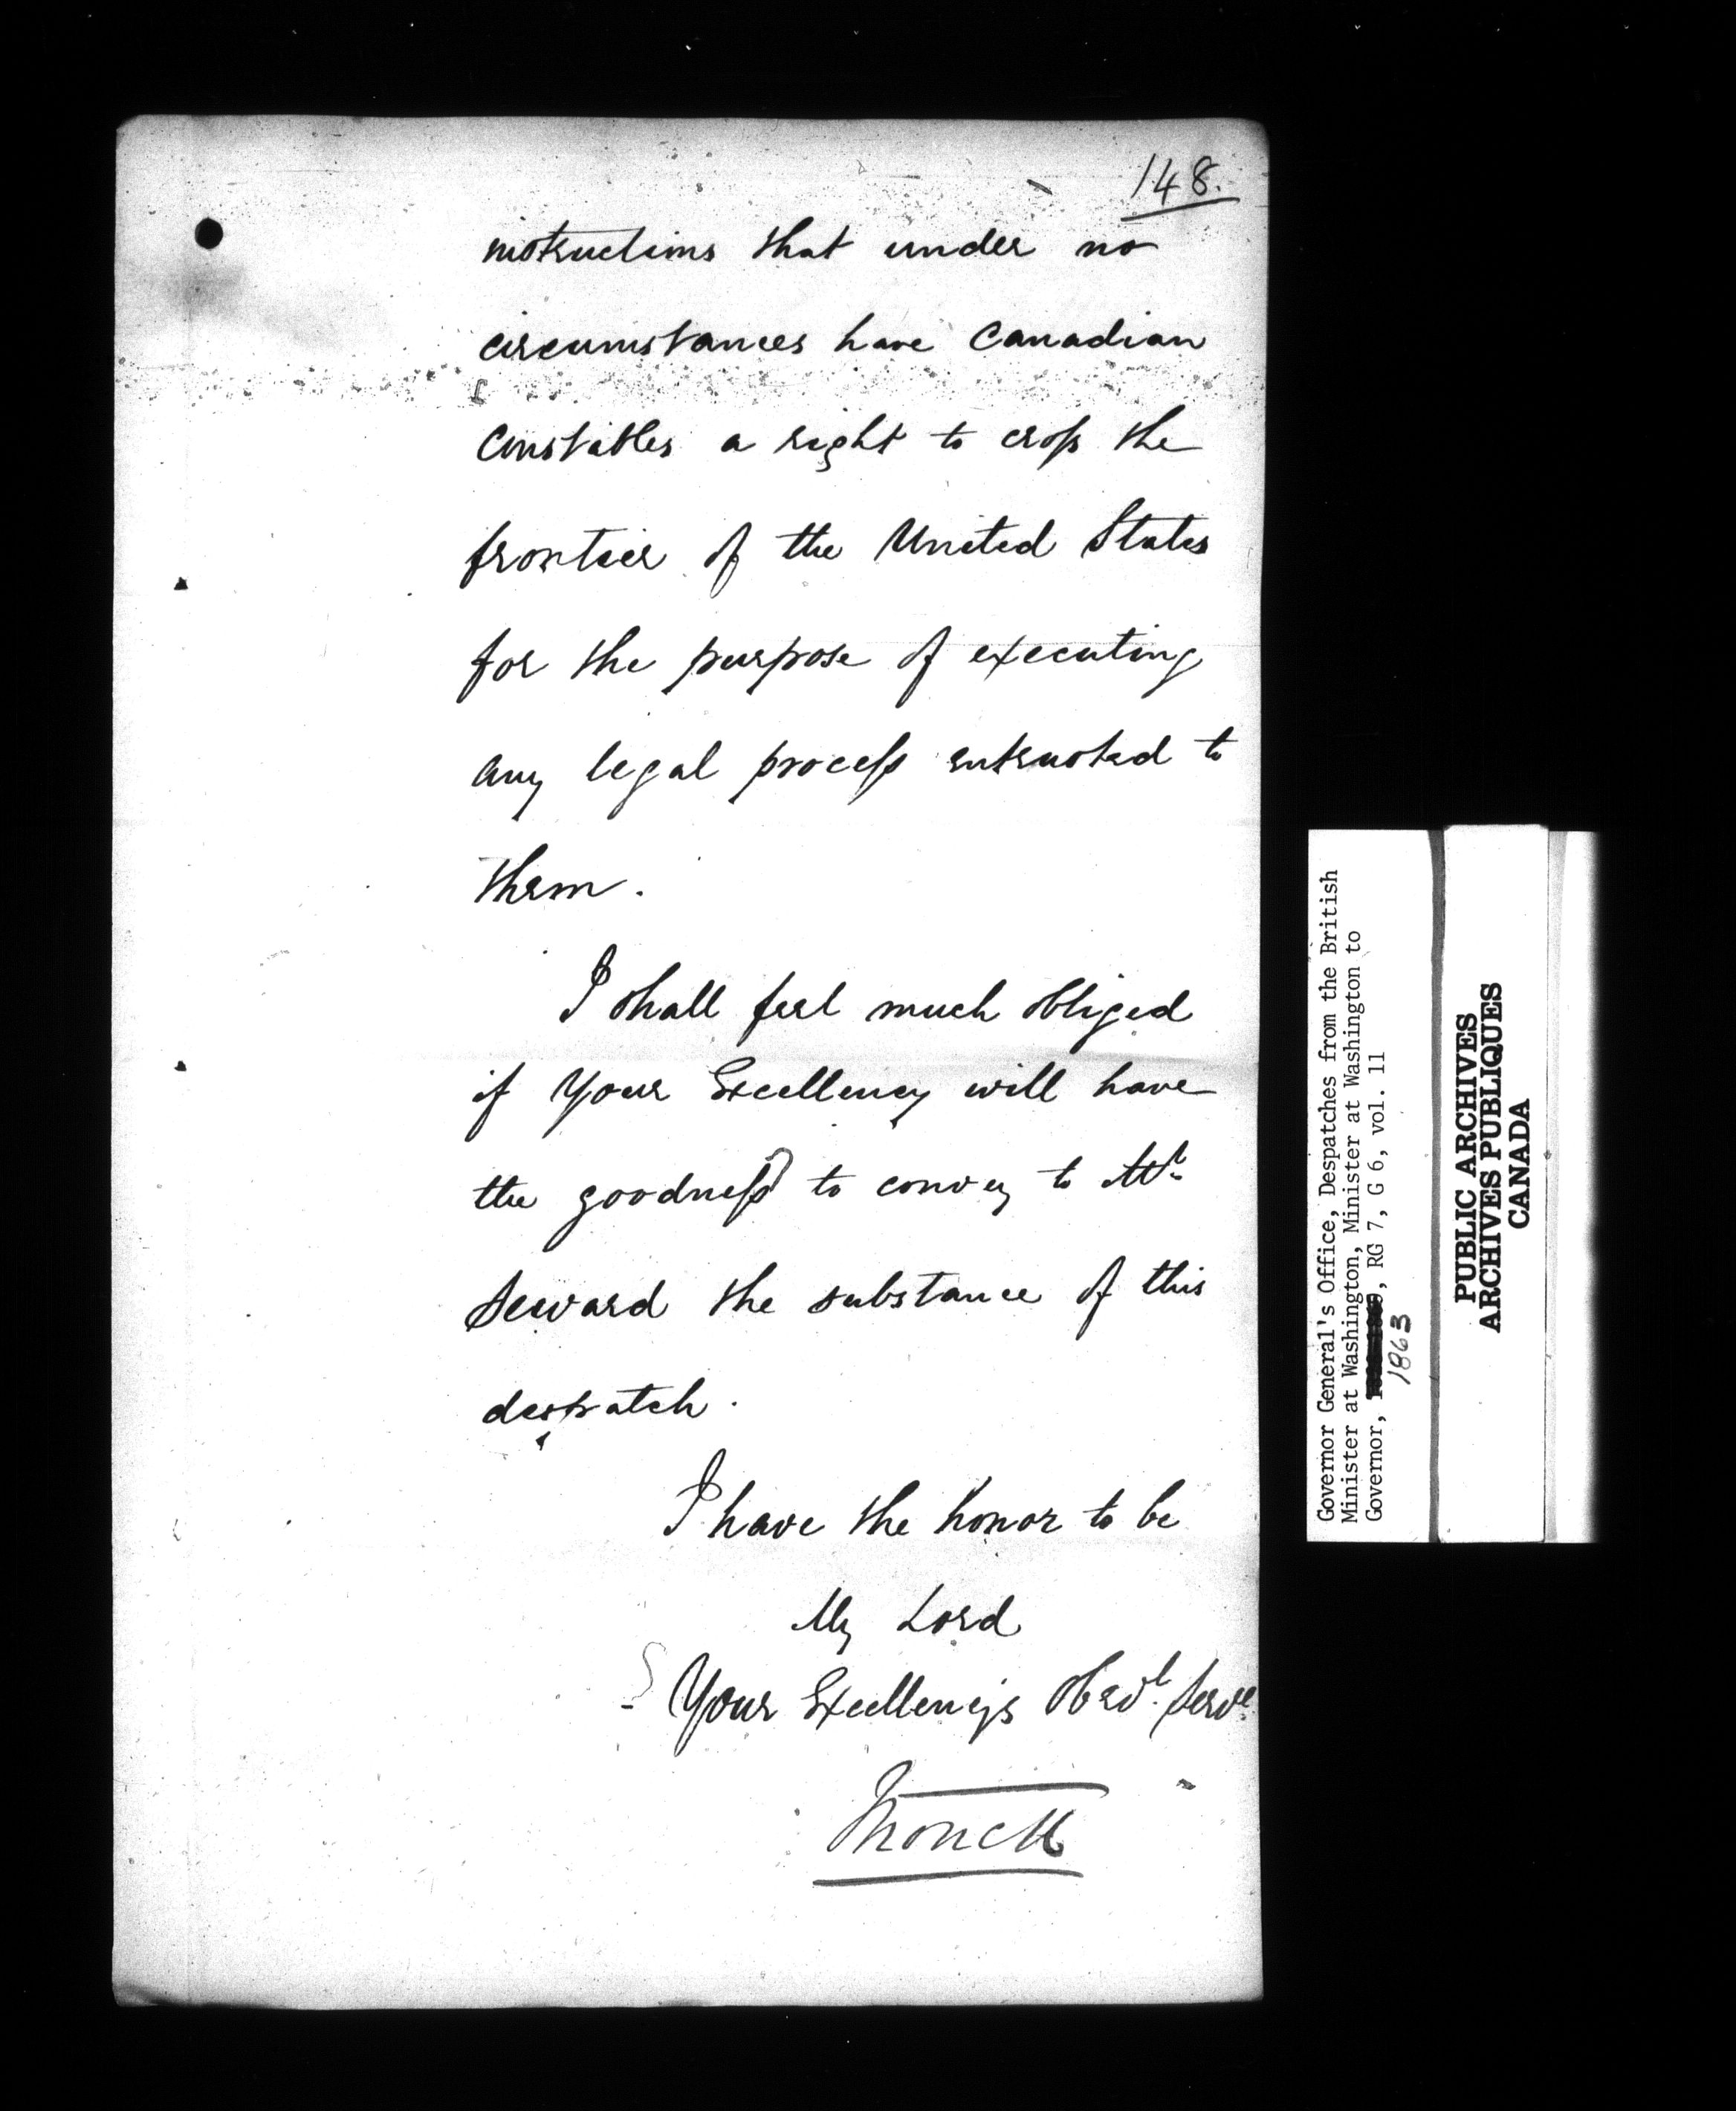 148.
instructions that under no
circumstances have Canadian
Constables a right to cross the
frontier of the United States
for the purpose of executing
any legal process entrusted to
them.
I shall feel much obliged
if Your Excellency will have
the goodness to convey to Mr.
Seward the substance of this
despatch.
I have the honor to be
My Lord
Your Excellency's Obedt. Servt.
Monck
Governor General's Office, Despatches from the British
Minister at Washington, Minister at Washington to
Governor, RG 7, G 6, vol. 11
1863
PUBLIC ARCHIVES
ARCHIVES PUBLIQUES
CANADA